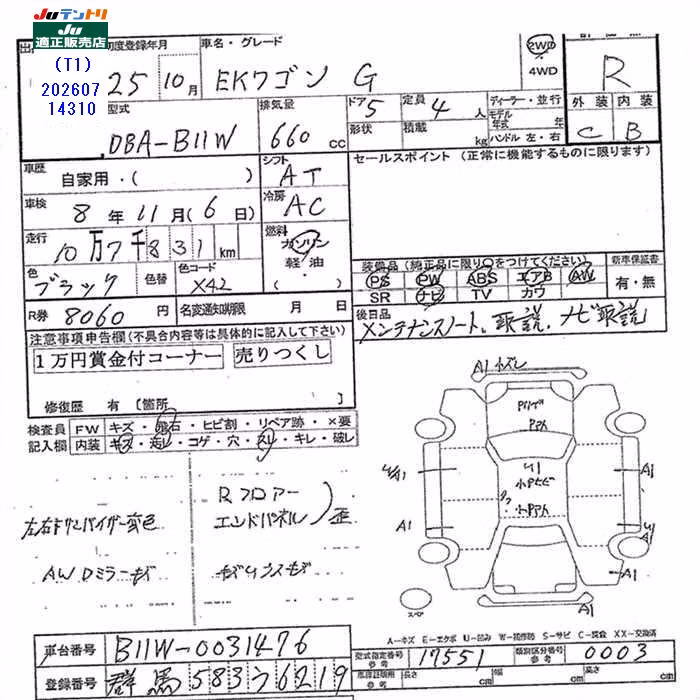 JUテントリ
JU
適正販売店
(T1)
202607
14310
初度登録年月
25年 10月
車名・グレード
EKワゴン G
2WD
4WD
R
外装 内装
C B
型式
DBA-B11W
排気量
660 cc
ドア 5
形状
定員 4人
積載 kg
ディーラー・並行
モデル年式 年
ハンドル 左・右
車歴
自家用・( )
シフト
AT
セールスポイント (正常に機能するものに限ります)
車検
8年 11月(6日)
冷房
AC
走行
10万7千831 km
燃料
ガソリン
軽油
( ・ )
色
ブラック
色替
色コード
X42
装備品(純正品に限り○をつけてください)
新車保証書
PS PW ABS エアB AW
SR ナビ TV カワ
有・無
R券 8060 円
名変通知期限 月 日
後日品
メンテナンスノート、取説、ナビ取説
注意事項申告欄(不具合内容等は具体的に記入して下さい)
1万円賞金付コーナー 売りつくし
修復歴 有 [箇所 ]
検査員記入欄
FW キズ・飛石・ヒビ割・リペア跡・×要
内装 キズ・汚レ・コゲ・穴・スレ・キレ・破レ
左右ドアバイザー変色
AWDミラーキズ
Rフロアー
エンドパネル)歪
A1 小ズレ
A1
A1
A1
A1
A1
スペア
A-キズ E-エクボ U-凹み W-補修跡 S-サビ C-腐食 XX-交換済
車台番号 B11W-0031476
登録番号 群馬 583 う 6219
型式指定番号 参考 17551
類別区分番号 参考 0003
車庫証明用 参考 長さ cm 幅 cm 高さ cm